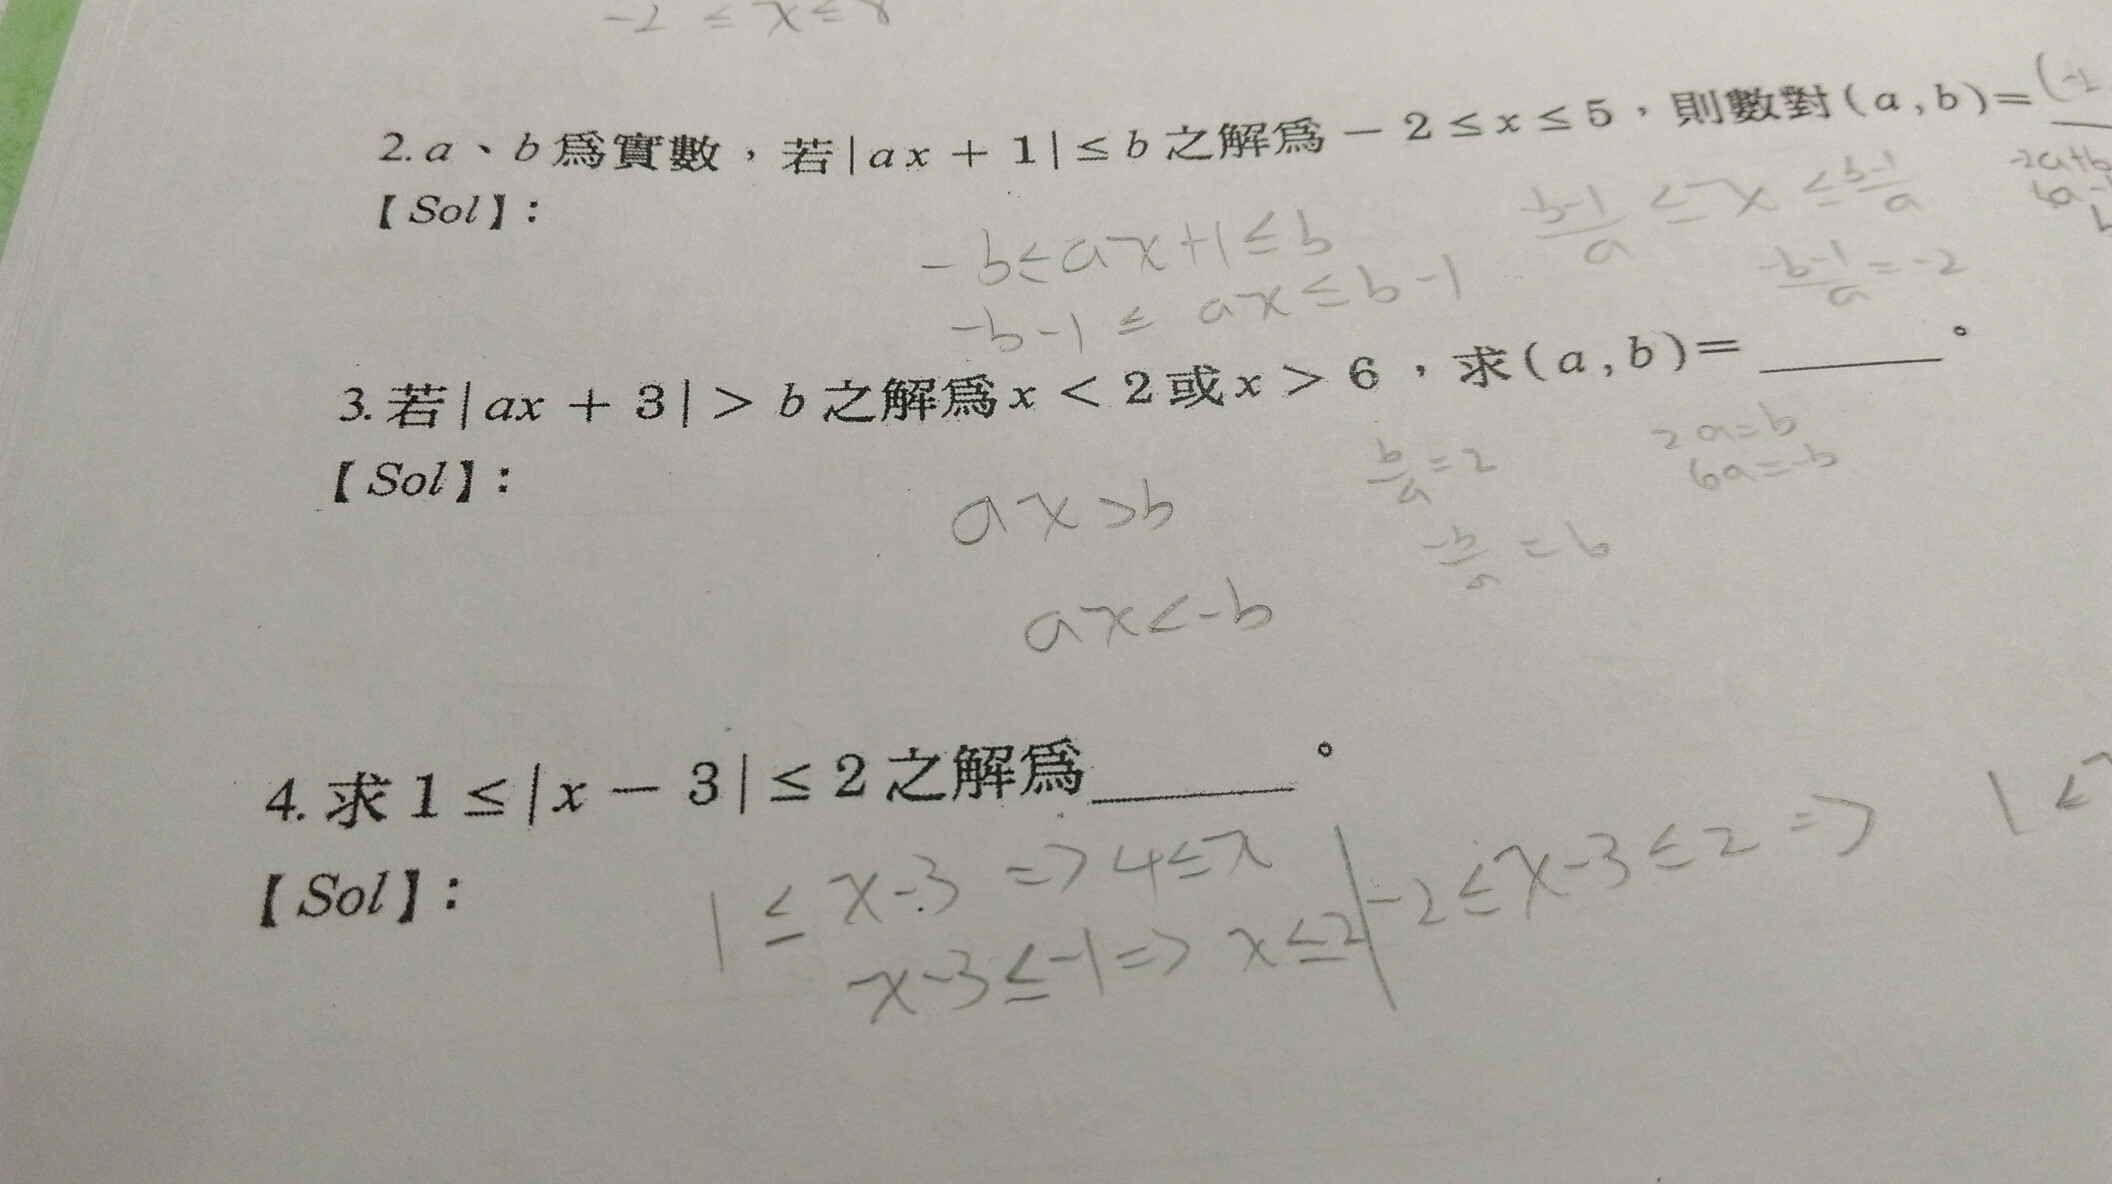 -2 ≤ x ≤
2. a、b為實數,若|ax + 1| ≤ b之解為 - 2 ≤ x ≤ 5,則數對(a,b)=
【Sol】:
-b ≤ ax+1 ≤ b
-b-1 ≤ ax ≤ b-1
(-b-1)/a ≤ x ≤ (b-1)/a
(-b-1)/a = -2
3. 若|ax + 3| > b之解為x < 2或x > 6,求(a,b)=______。
【Sol】:
ax>b
ax<-b
b/a = 2
-b/a = 6
2a=b
6a=-b
4. 求1 ≤ |x - 3| ≤ 2之解為______。
【Sol】:
1 ≤ x-3 => 4≤x
x-3≤-1 => x≤2
-2≤x-3≤2 => 1≤